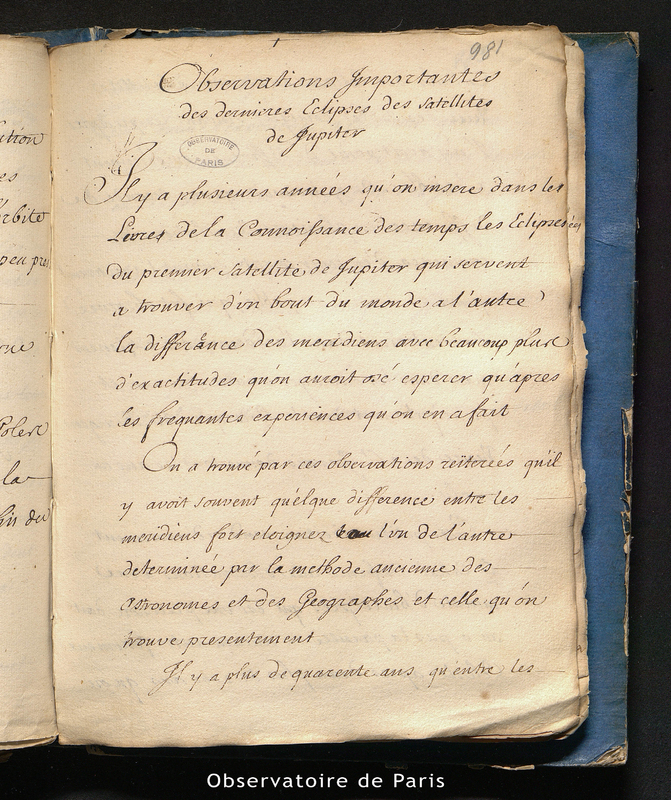 ution
es
rbite
peu pres
rue
Polere
la
981
Observations Importantes
des dernieres Eclipses des satellites
de Jupiter
OBSERVATOIRE
DE
PARIS
Il y a plusieurs années qu'on insere dans les
Livres de la Connoissance des temps les Eclipses
du premier satellite de Jupiter qui servent
a trouver d'un bout du monde a l'autre
la différance des meridiens avec beaucoup plus
d'exactitudes qu'on auroit osé esperer qu'apres
les frequantes experiences qu'on en a fait
On a trouvé par ces observations reïterées qu'il
y avoit souvent quélque difference entre les
meridiens fort eloignez l'un de l'autre
determinée par la methode ancienne des
astronomes et des Geographes et celle qu'on
trouve presentement
Il y a plus de quarente ans qu'entre les
Observatoire de Paris